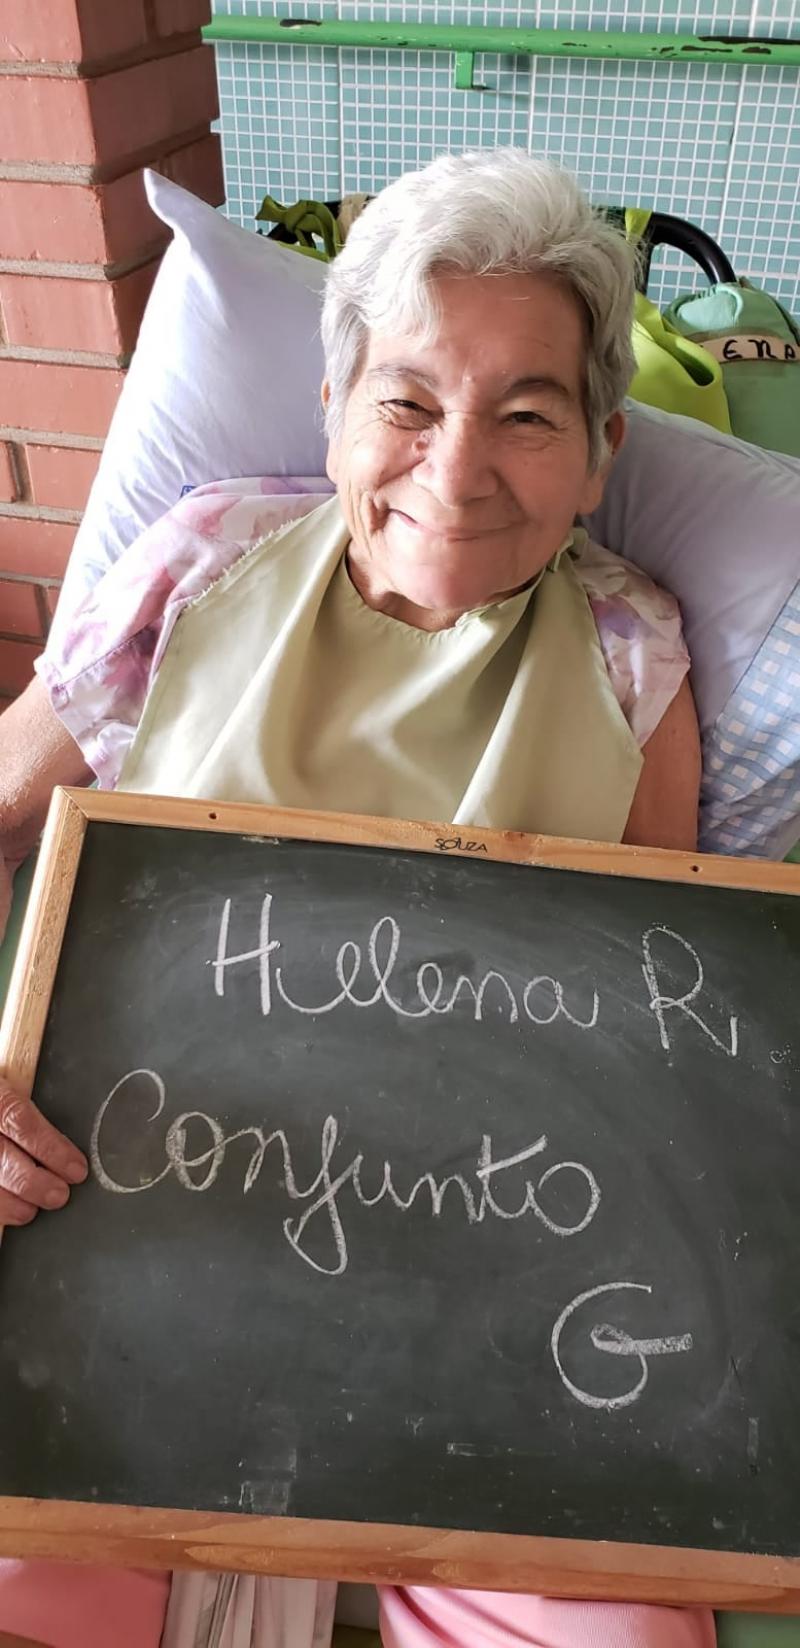 ENA
SOUZA
Hellena R.
Conjunto
G